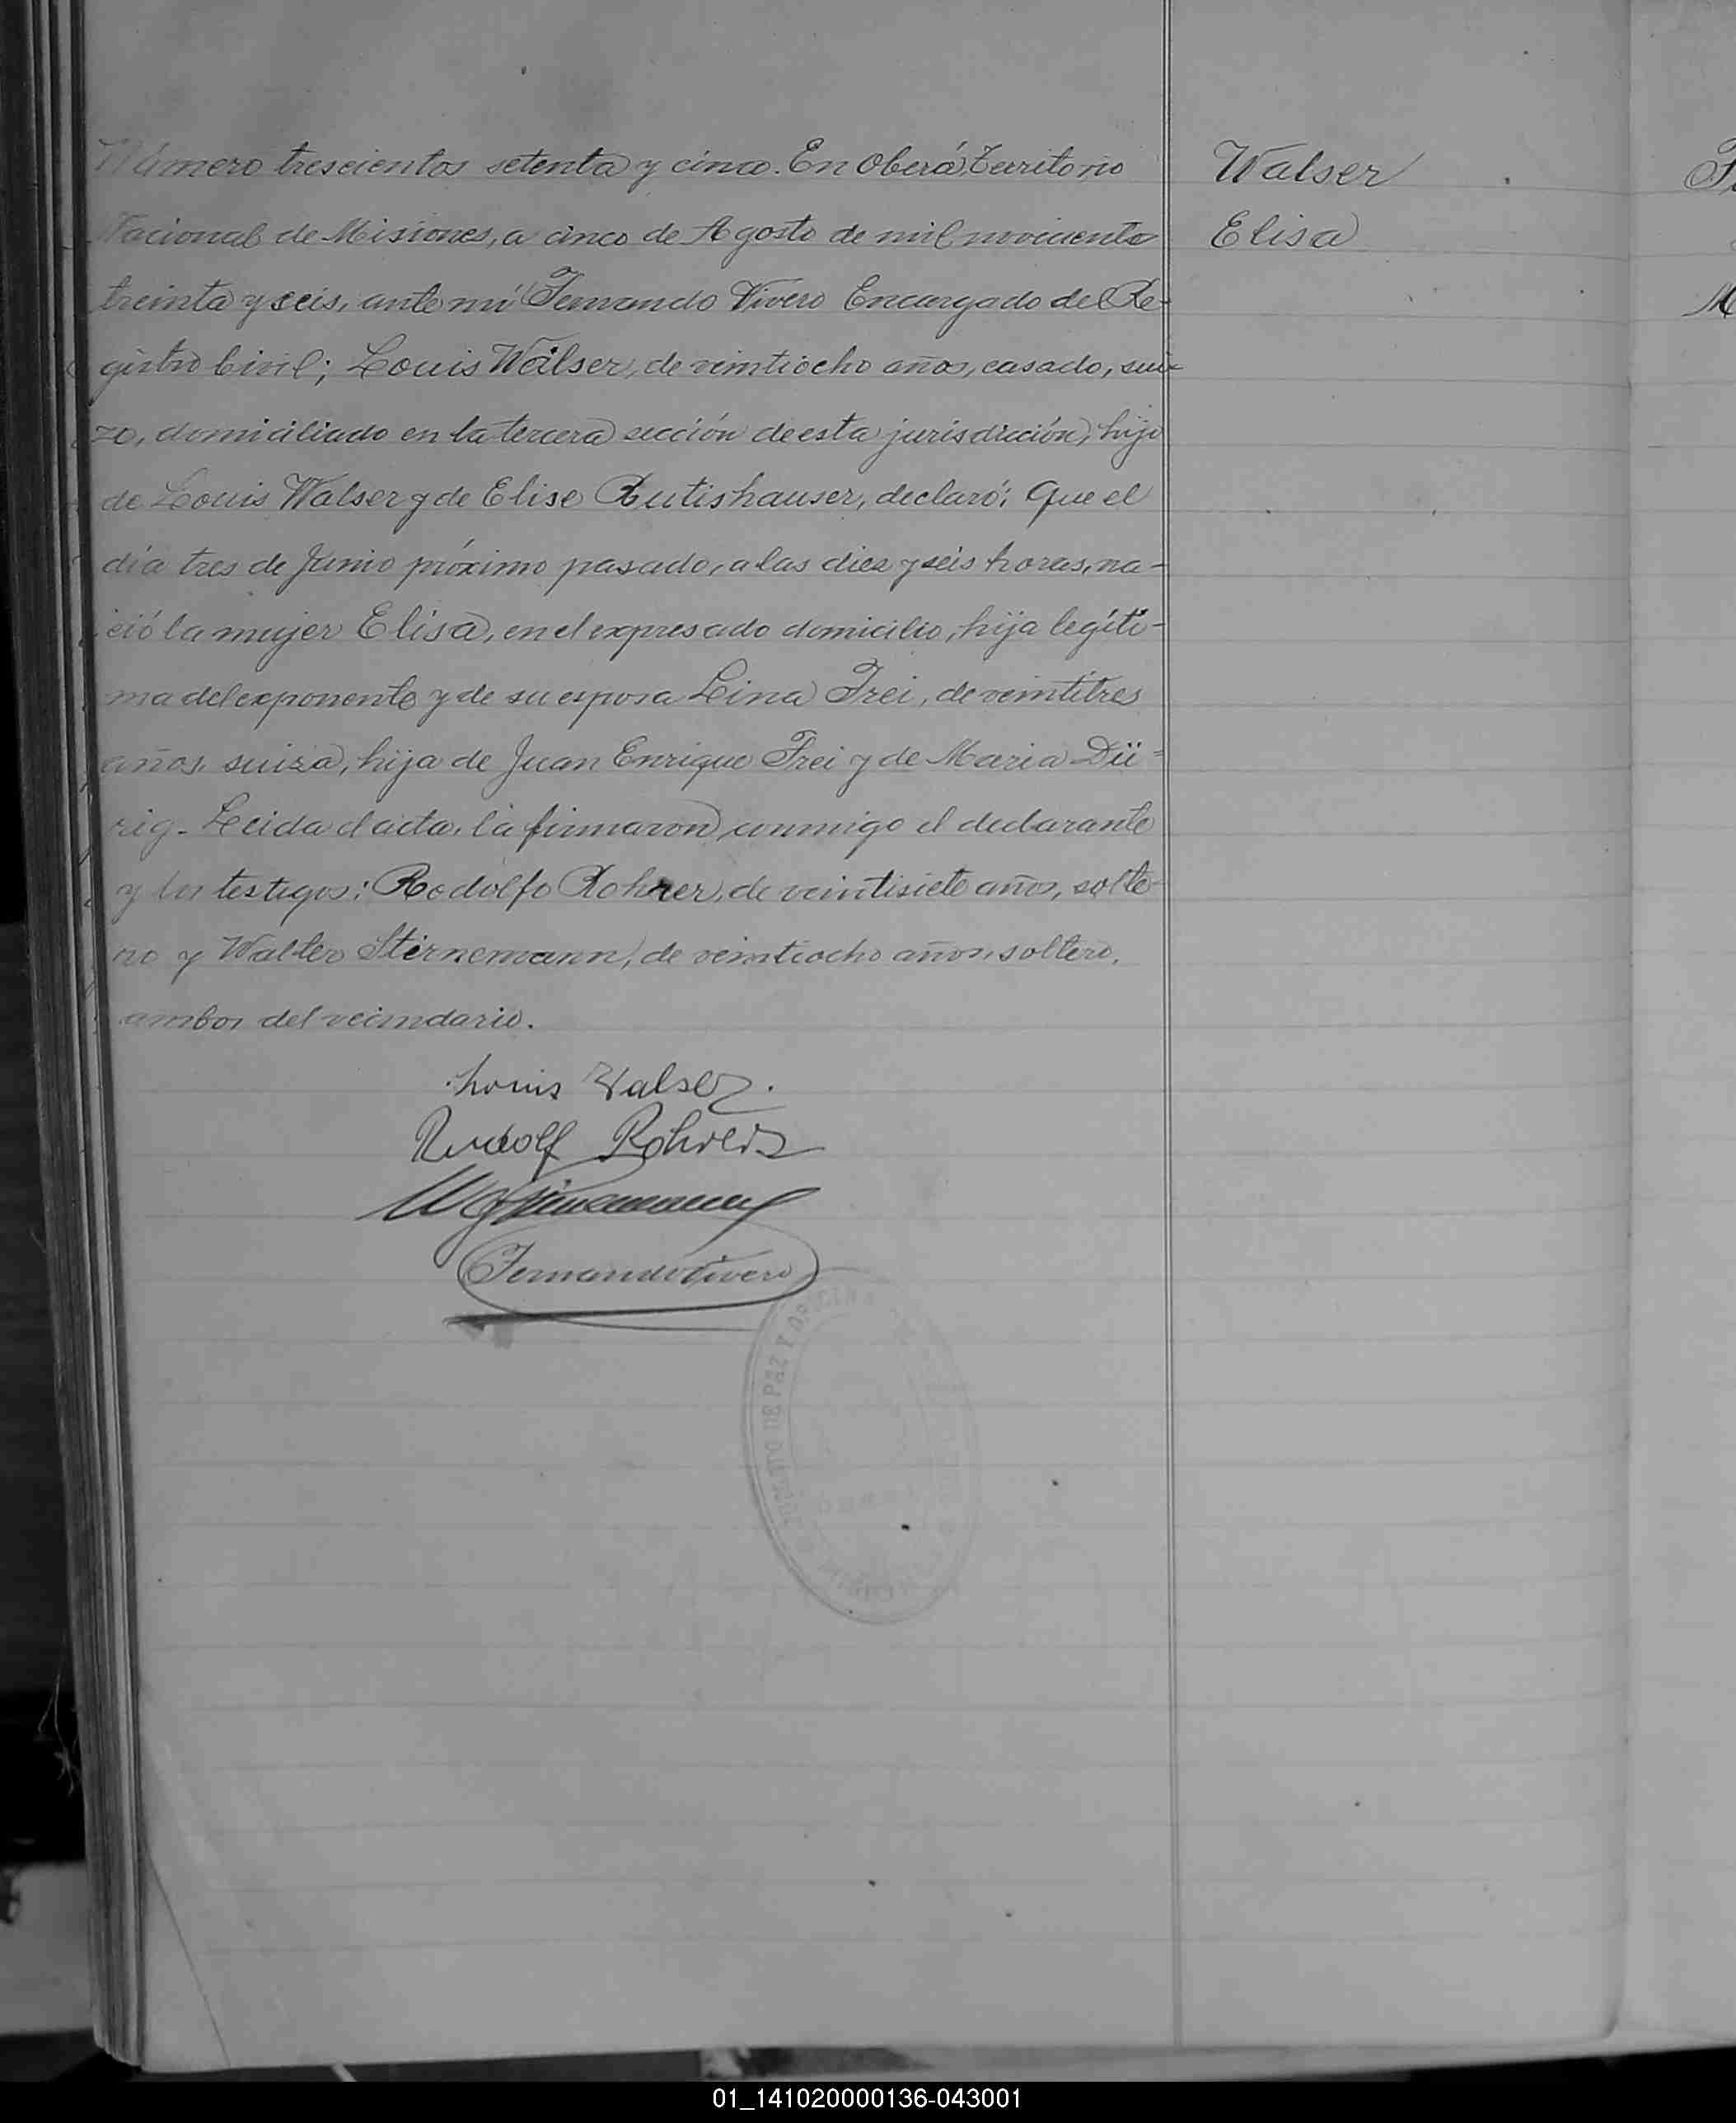 Número trescientos setenta y cinco. En Oberá, Territorio
Nacional de Misiones, a cinco de Agosto de mil novecientos
treinta y seis, ante mí Fernando Vivero Encargado del Re-
gistro Civil; Louis Walser, de veintiocho años, casado, sui-
zo, domiciliado en la tercera sección de esta jurisdicción, hijo
de Louis Walser y de Elise Rutishauser, declaró: Que el
día tres de Junio próximo pasado, a las diez y seis horas, na-
ció la mujer Elisa, en el expresado domicilio, hija legíti-
ma del exponente y de su esposa Lina Frei, de veintitres
años, suiza, hija de Juan Enrique Frei y de Maria Dü-
rig. Leida el acta, la firmaron conmigo el declarante
y los testigos: Rodolfo Rohrer, de veintisiete años, solte-
ro y Walter Stirnemann, de veintiocho años, soltero,
ambos del vecindario.
Louis Walser.
Rudolf Rohrer
W Stirnemann
Fernando Vivero
JUZGADO DE PAZ Y OFICINA
Walser
Elisa
01_141020000136-043001